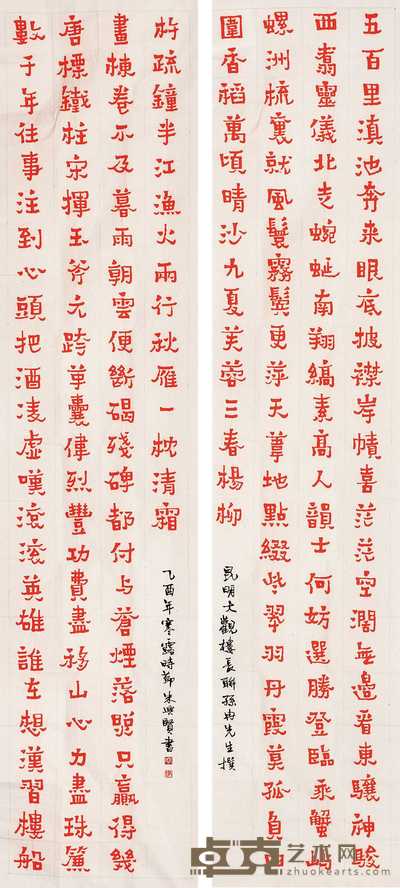 五百里滇池奔來眼底披襟岸幘喜茫茫空闊無邊看東驤神駿
西翥靈儀北走蜿蜒南翔縞素高人韻士何妨選勝登臨乘蟹嶼
螺洲梳裹就風鬟霧鬢更萍天葦地點綴些翠羽丹霞莫孤負
圍香稻萬頃晴沙九夏芙蓉三春楊柳
昆明大觀樓長聯孫冉先生撰
數千年往事注到心頭把酒凌虛嘆滾滾英雄誰在想漢習樓船
唐標鐵柱宋揮玉斧元跨革囊偉烈豐功費盡移山心力盡珠簾
畫棟卷不及暮雨朝雲便斷碣殘碑都付与蒼煙落照只贏得幾
杵疏鐘半江漁火兩行秋雁一枕清霜
乙酉年寒露時節朱興賢書
卓克艺术网
zhuokearts.com